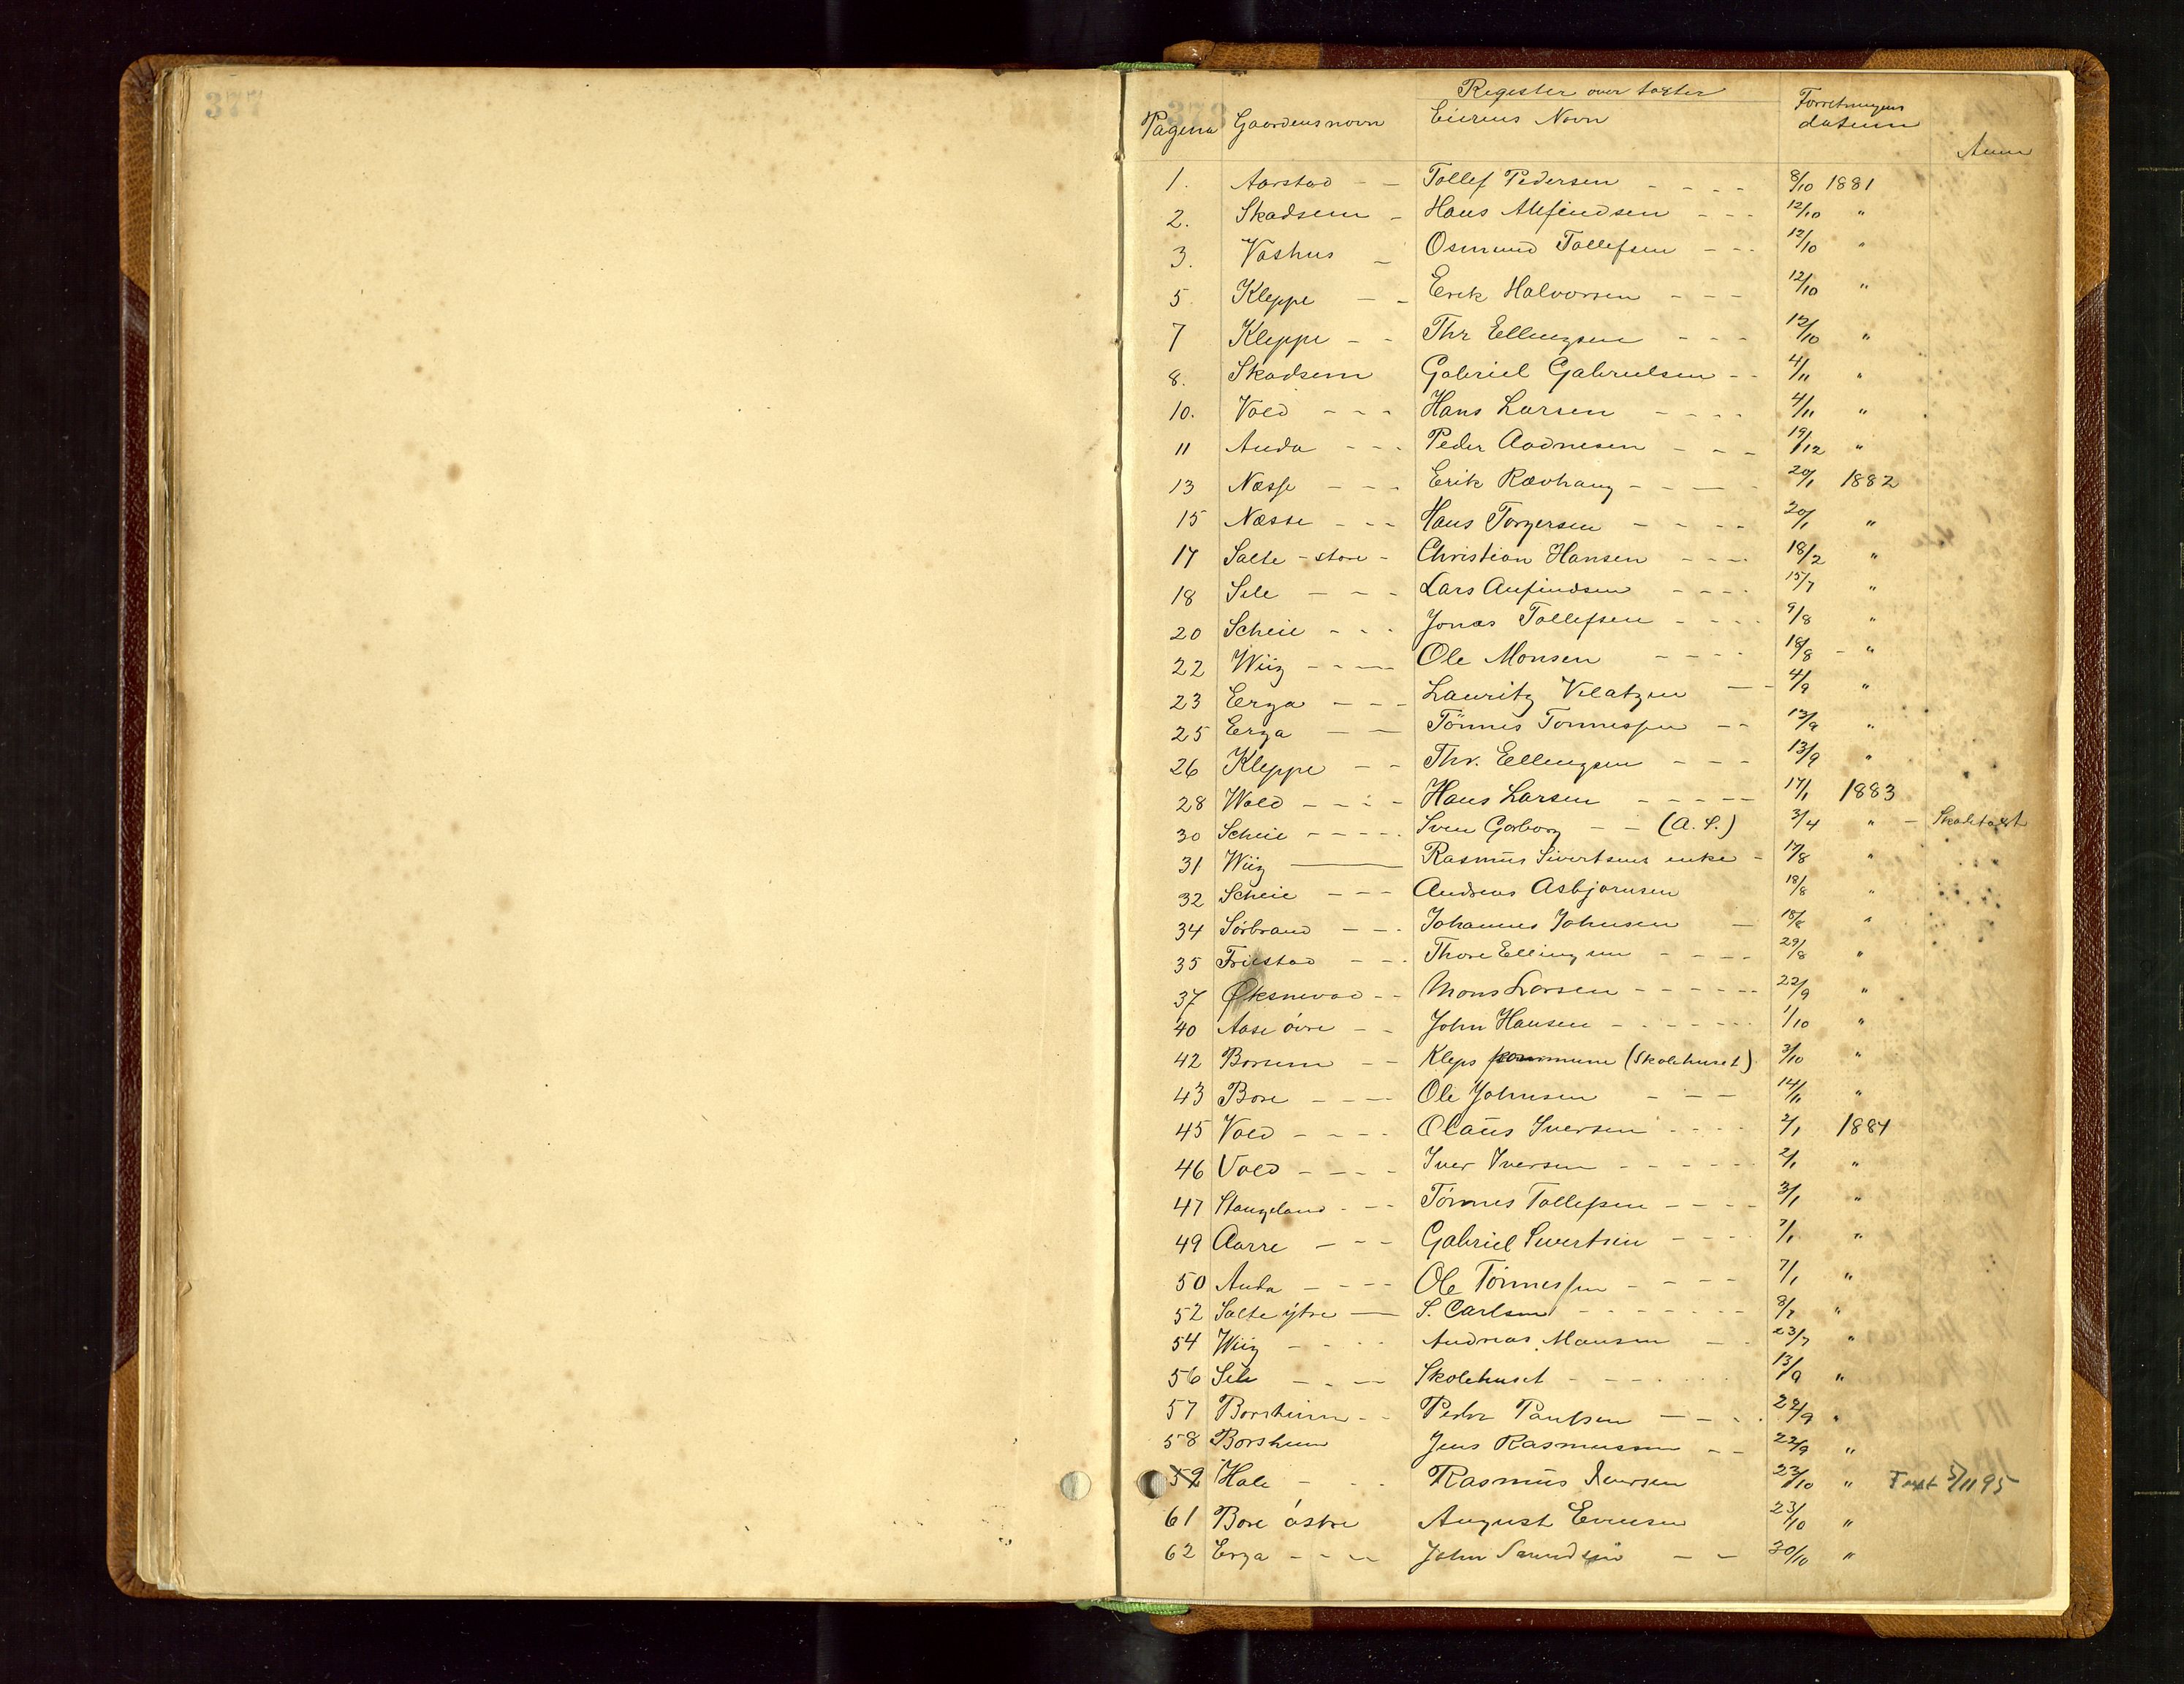 377
378
Register over taxter
Pagina Gaardens navn Eiernes Navn Forretningens datum Anm
1. Aarstad - - Tollef Pedersen - - - - 8/10 1881
2. Skadsem - Hans Alfindsen - - - 12/10 "
3. Vashus - Osmund Tollefsen - - - 12/10 "
5 Kleppe - - Erik Halvorsen - - - 12/10 "
7 Kleppe - - Thr Ellingsen - - - 12/10 "
8. Skadsem Gabriel Gabrielsen - - 4/11 "
10. Vold - - - Hans Larsen - - - - 4/11 "
11 Anda - - - Peder Aadnesen - - - 19/12 "
13 Næsse - - - Erik Rævhaug - - - 20/1 1882
15 Næsse - - - Hans Torgersen - - - - 20/1 "
17 Salte - store - Christian Hansen - - - 18/2 "
18 Sele - - - Lars Anfindsen - - - - 15/7 "
20 Scheie - - - Jonas Tollefsen - - - - 9/8 "
22 Wiig - - - - Ole Monsen - - - - 18/8 - "
23 Erga - - - Lauritz - - 4/9 "
25 Erga - - Tönnes Tönnessen - - 13/9 "
26 Kleppe - - Thr. Ellingsen - - - 13/9 "
28 Wold - - - - Hans Larsen - - - - - 17/1 1883
30 Scheie - - - - Sven Garborg - - (A. S.) 3/4 " - Skoletaxt
31 Wiig - Rasmus Sivertsens enke - 17/8 "
32 Scheie - - - Andreas Asbjørnsen 18/8 "
34 Sørbrand - - - Johannes Johnsen - 18/8 "
35 Friestad - - - Thore Ellingsen - - - - 29/8 "
37 Øksnevad - - Mons Larsen - - - - - - 22/9 "
40 Aase övre - - John Hansen - - - - - - 1/10 "
42 Borsem - - Kleps kommune (Skolehuset) 3/10 "
43 Bore - - - - Ole Johnsen - - - 14/11 "
45 Vold - - - - Olaus Iversen - - - - 2/1 1884
46 Vold - - - - Iver Iversen - - - - - - 2/1 "
47 Stangeland - - - Tönnes Tollefsen - - - - 3/1 "
49 Aarre - - - Gabriel Sivertsen - - - - 7/1 "
50 Anda - - - - Ole Tönnessen - - - - 7/1 "
52 Salte ytre - S. Carlsen - - - - - - - 8/7 "
54 Wiig - - - - Andreas Monsen - - 23/7 "
56 Sele - - - Skolehuset - - - - - - 13/9 "
57 Borsheim - - Peder Paulsen - - - - 22/9 "
58 Borsheim Jens Rasmussen - - 22/9 "
59 Hole - - - Rasmus Iversen 23/10 " Taxt 5/11 95
61 Bore östre August Evensen 23/10 "
62 Erga - - - John - - 30/10 "